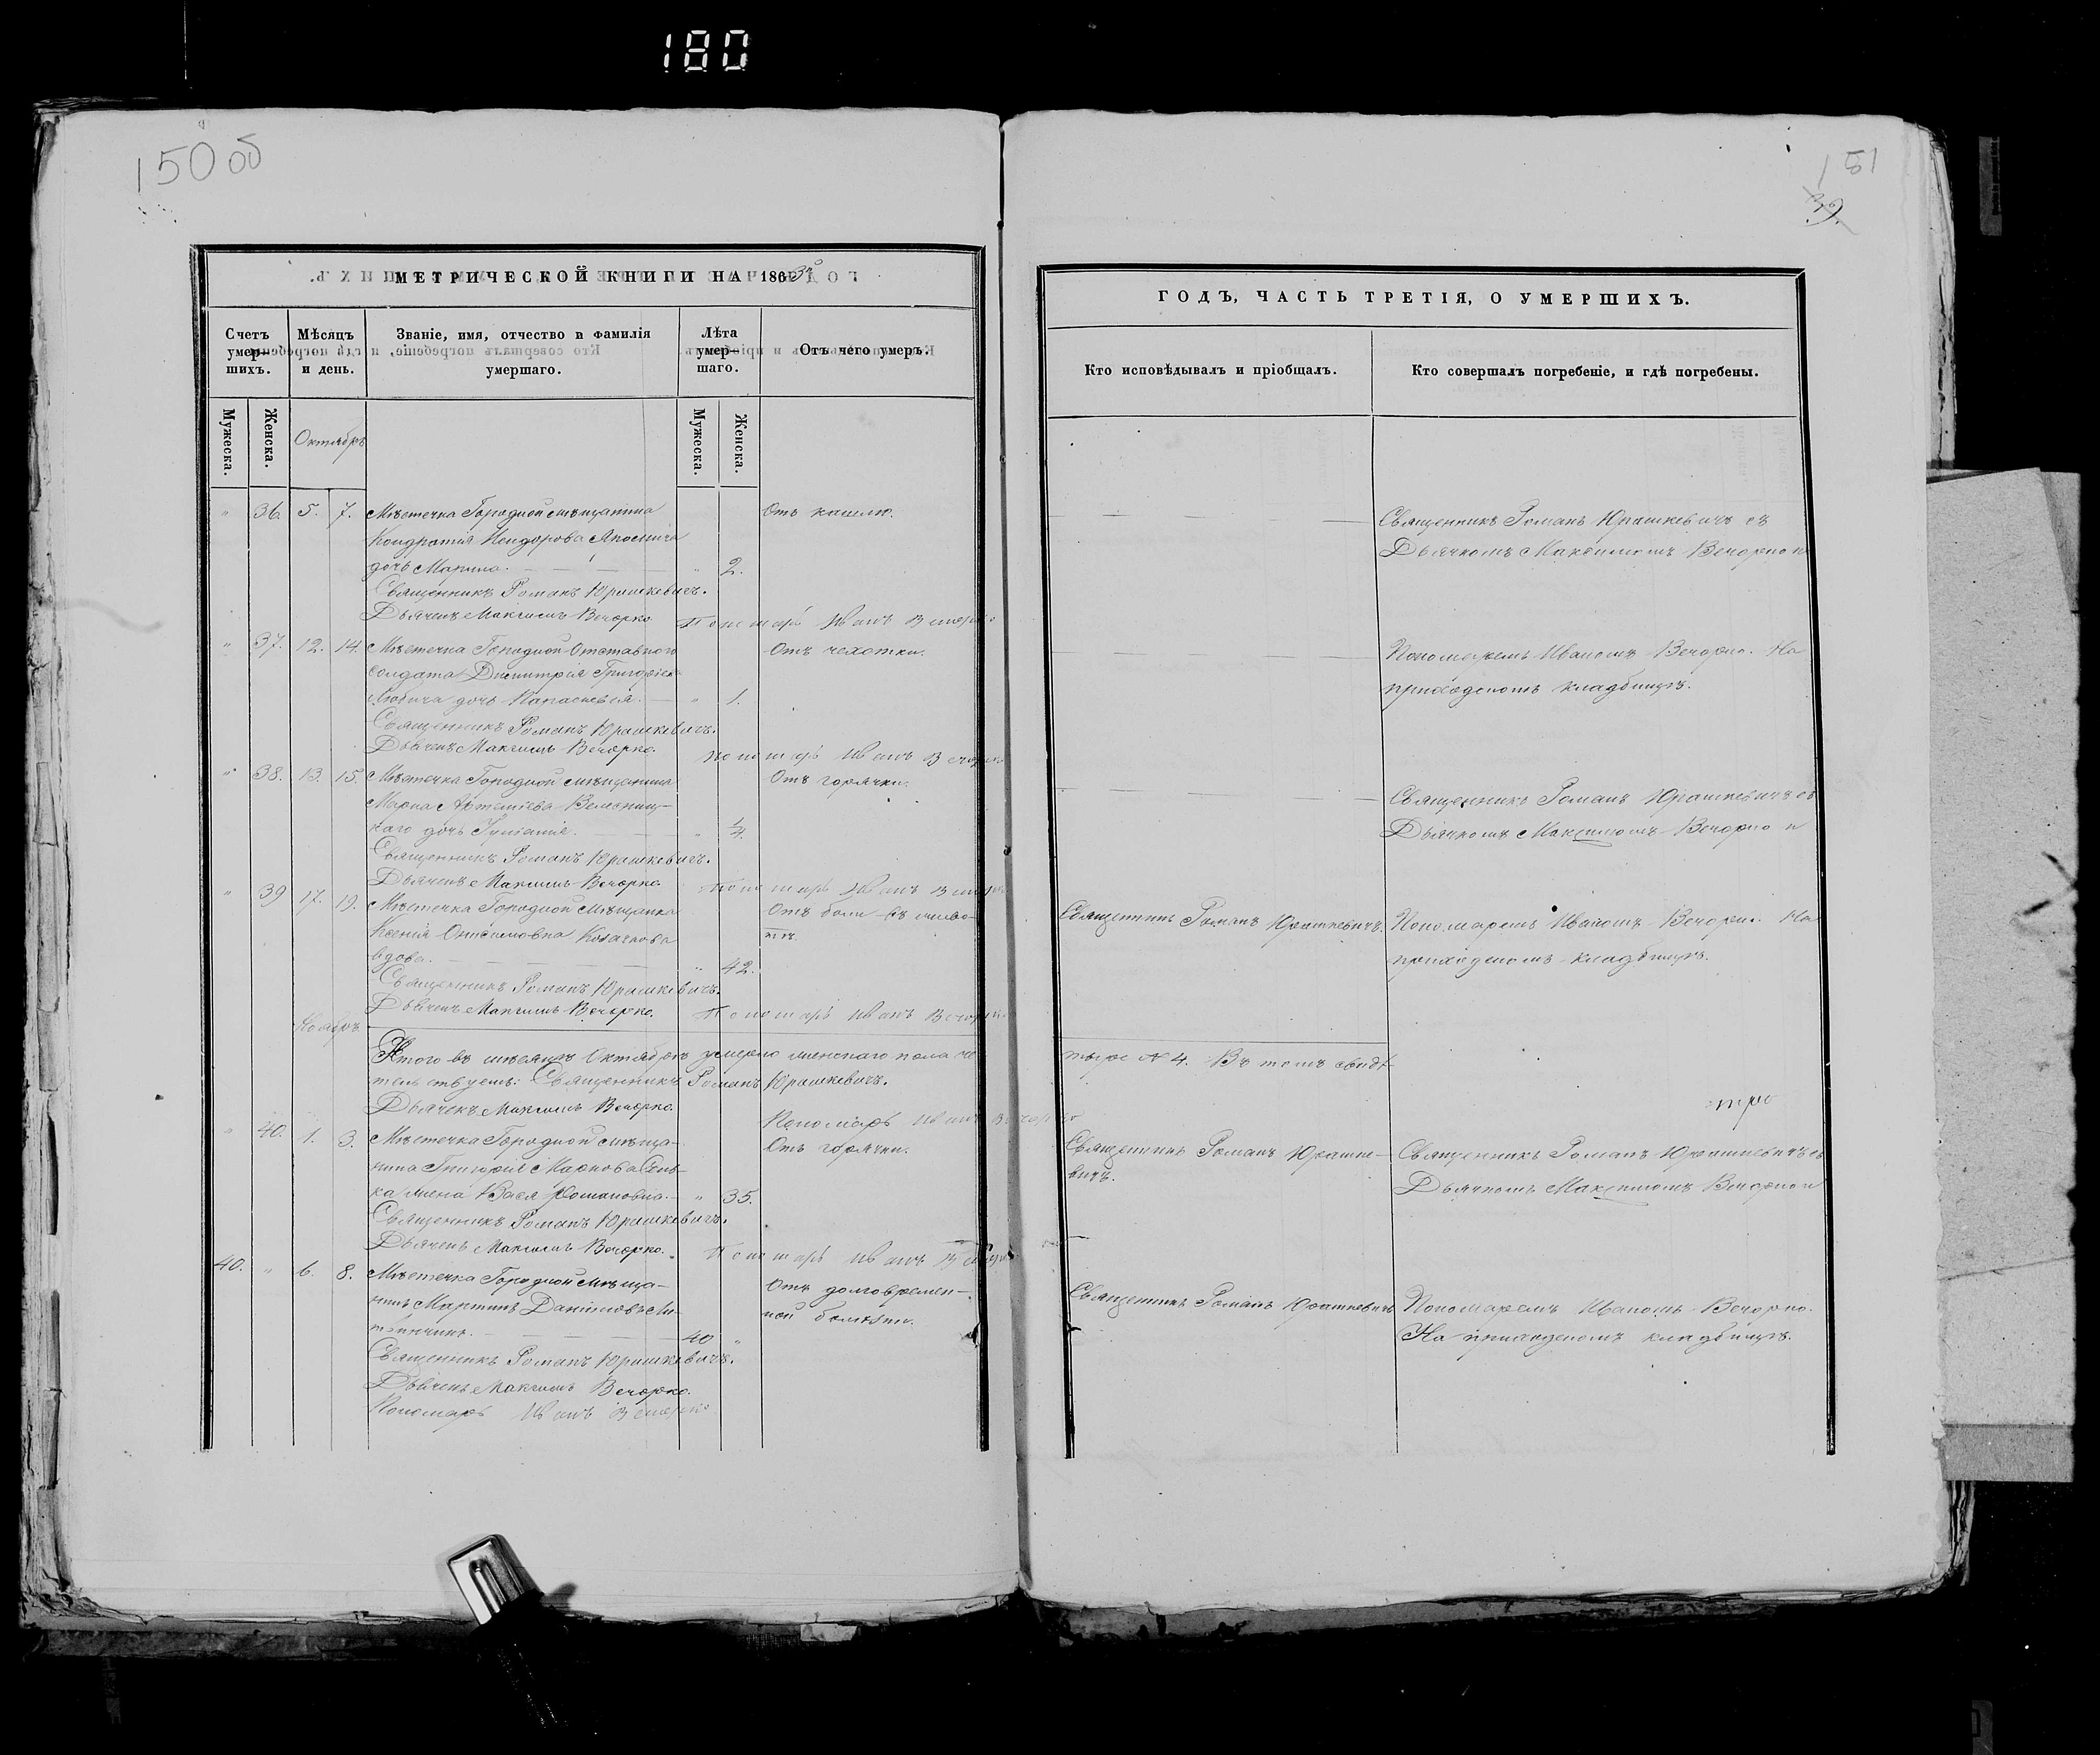 180
150 об
151
39
МЕТРИЧЕСКОЙ КНИГИ НА 1863
Счетъ умер-шихъ.
Мѣсяцъ и день.
Званіе, имя, отчество и фамилія умершаго.
Лѣта умер-шаго.
Отъ чего умеръ.
Мужеска.
Женска.
Октябрь
Мужеска.
Женска.
" 36. 5. 7. Мѣстечка Городной мѣщанина
Отъ кашлю.
Кондратія
дочь Марина. " 2.
Священникъ Романъ Юрашкевичъ.
Дьячекъ Максимъ Вечорко
Пономарь Иванъ Вечорко
" 37. 12. 14. Мѣстечка Городной Отставного
Отъ чехотки.
солдата Димитрія Григоріева
дочь " 1.
Священникъ Романъ Юрашкевичъ.
Дьячекъ Максимъ Вечорко.
Пономарь Иванъ Вечорко
" 38. 13. 15. Мѣстечка Городной мѣщанина
Отъ горячки.
Марка Артеміева
каго дочь " 1/4.
Священникъ Романъ Юрашкевичъ.
Дьячекъ Максимъ Вечорко
Пономарь Иванъ Вечорко
" 39 17. 19. Мѣстечка Городной Мѣщанка
Отъ боли въ живо-
Ксенія Онисимовна
тѣ.
вдова. " 42.
Священникъ Романъ Юрашкевичъ.
Дьячекъ Максимъ Вечорко.
Пономарь Иванъ Вечорко
Ноябрь
Итого въ мѣсяцѣ Октябрѣ умерло женскаго пола че
тельствуемъ: Священникъ Романъ Юрашкевичъ.
Дьячекъ Максимъ Вечорко.
Пономарь Иванъ Вечорко
" 40. 1. 3. Мѣстечка Городной мѣща-
Отъ горячки.
нина Григорія Маркова
ка жена Романовна. " 35.
Священникъ Романъ Юрашкевичъ.
Дьячекъ Максимъ Вечорко.
Пономарь Иванъ Вечорко
40. " 6. 8. Мѣстечка Городной Мѣща-
Отъ долговремен-
нинъ Мартинъ Даниловъ
ной болѣзни.
40 "
Священникъ Романъ Юрашкевичъ.
Дьячекъ Максимъ Вечорко.
Пономарь Иванъ Вечорко
ГОДЪ, ЧАСТЬ ТРЕТІЯ, О УМЕРШИХЪ.
Кто исповѣдывалъ и пріобщалъ.
Кто совершалъ погребеніе, и гдѣ погребены.
Священникъ Романъ Юрашкевичъ съ
Дьячкомъ Максимомъ Вечорко и
Пономаремъ Иваномъ Вечорко. На
приходскомъ кладбищѣ.
Священникъ Романъ Юрашкевичъ съ
Дьячкомъ Максимомъ Вечорко и
Священникъ Романъ Юрашкевичъ.
Пономаремъ Иваномъ Вечорко. На
приходскомъ кладбищѣ.
тыре № 4. Въ томъ свидѣ-
Священникъ Романъ Юрашке-
вичъ.
Священникъ Романъ Юрашкевичъ съ
Дьячкомъ Максимомъ Вечорко и
Священникъ Романъ Юрашкевичъ
Пономаремъ Иваномъ Вечорко.
На приходскомъ кладбищѣ.